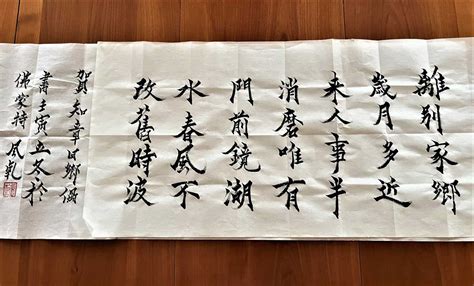 離別家鄉
歲月多近
来人事半
消磨唯有
門前鏡湖
水春風不
改舊時波
賀知章回鄉偶
書壬寅立冬於
佛